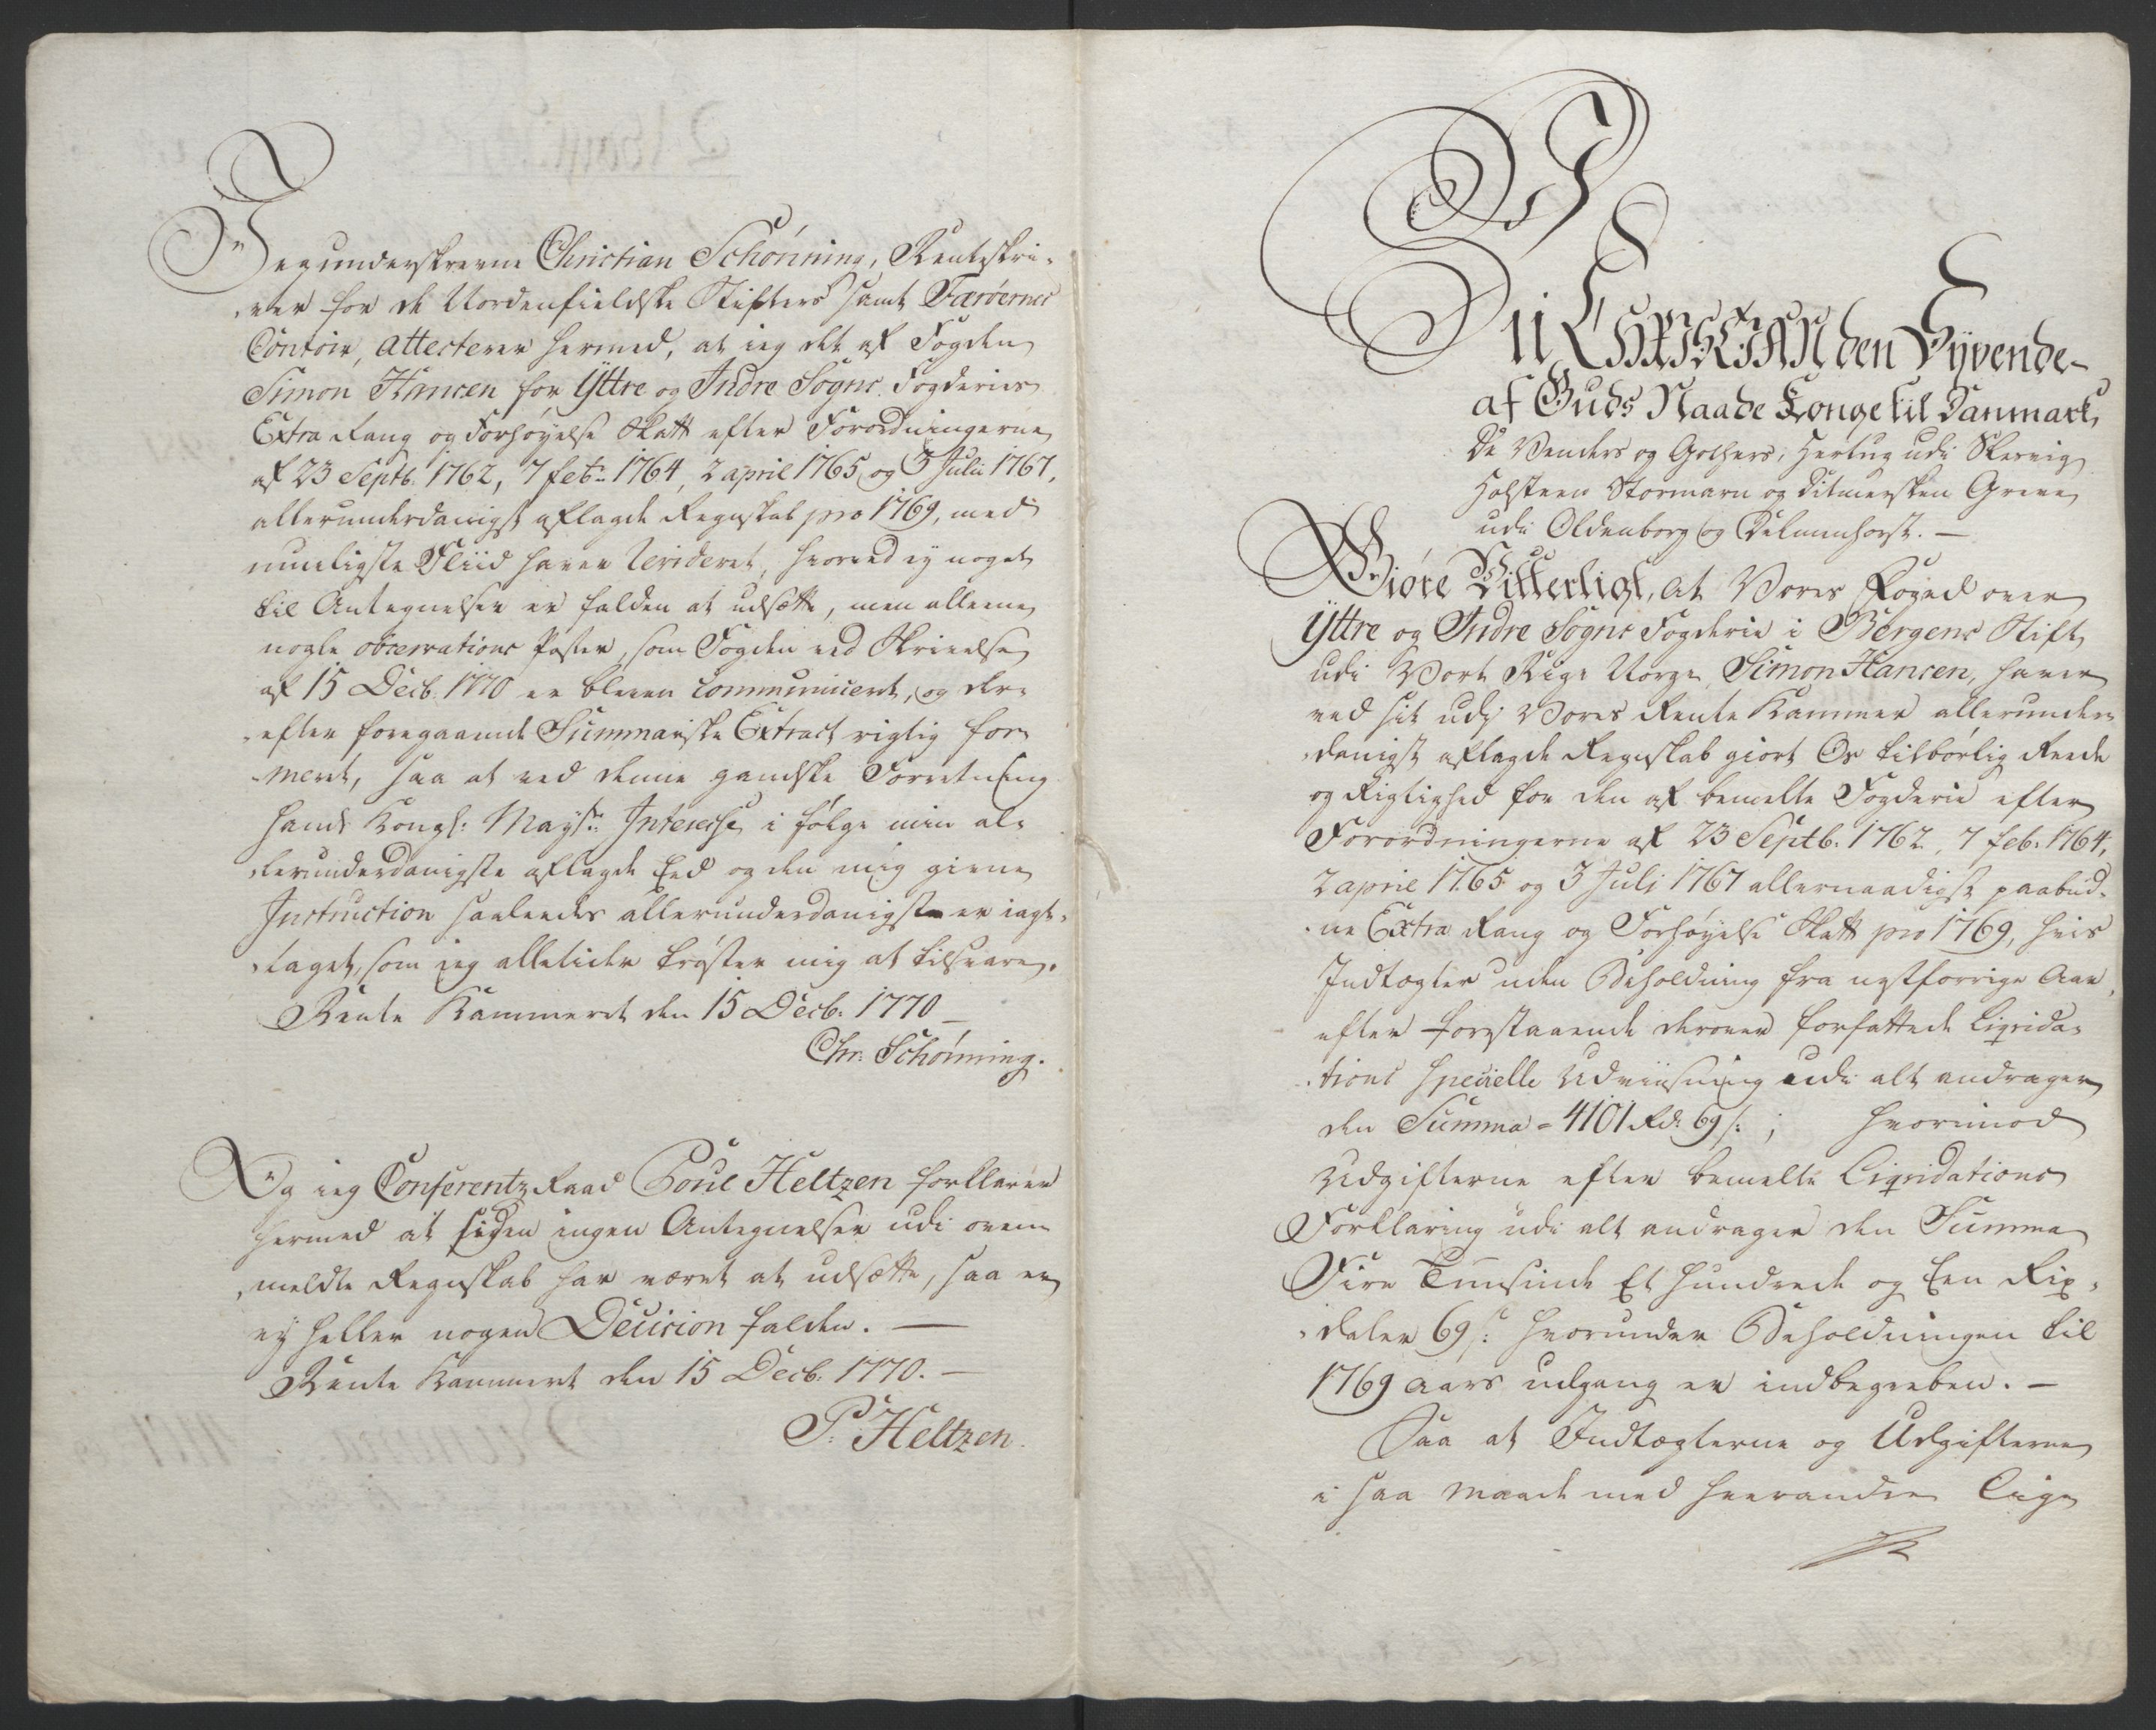 Jeg underskrevne Christian Schønning, Renteskri-
ver for de Nordenfieldske Stifters samt Færøernes
Contoir, attesterer hermed, at ieg det af Fogden
Simon Hansen for Yttre og Indre Sogns Fogderies
Extra Rang og Forhøyelse Skatt efter Forordningerne
af 23 Septb. 1762, 7 febr: 1764, 2 april 1765 og 3 Julii 1767,
allerunderdanigst aflagde Regnskab pro 1769, med
mueligste Fliid haver Revideret, hvorved ey noget
til Antegnelser er falden at udsætte, men alleene
nogle observations Poster, som Fogden ved Skrivelse
af 15 Decb. 1770 er bleven communiceret, og der-
efter foregaaende Summariske Extract rigtig for-
meret, saa at ved denne gandske Forretning
Hands Kongl: Mayts: Interesse i følge min al-
lerunderdanigste aflagde Eed og den mig givne
Instruction saaledes allerunderdanigste er iagt-
taget, som ieg alletider trøster mig at tilsvare.
Rente Kammeret den 15 Decb: 1770
Chr: Schønning.
Og ieg Conferentz Raad Poul Heltzen forklarer
hermed at siden ingen Antegnelser udi oven-
meldte Regnskab har været at udsætte, saa er
ey heller nogen Decision falden. —
Rente Kammeret den 15 Decb. 1770. —
P. Heltzen.
Vii CHRISTIAN den Syvende-
af Guds Naade Konge til Danmark,
De Venders og Gothers, Hertug udi Slesvig
Holsteen Stormarn og Ditmersken Greve
udi Oldenborg og Delmenhorst. —
Giøre Vitterligt, At Vores Foged over
Yttre og Indre Sogns Fogderie i Bergens Stift
udi Vort Rige Norge Simon Hansen, haver
ved sit udj Vores Rente Kammer allerunder-
danigst aflagde Regnskab giort Os tilbørlig Reede
og Rigtighed for den af bemelte Fogderie efter
Forordningerne af 23 Septb. 1762, 7 feb. 1764,
2 april 1765 og 3 Julj 1767 allernaadigst paabud-
ne Extra Rang og Forhøyelse Skatt pro 1769, hvis
Indtægter uden Beholdning fra nestforrige Aar
efter forestaaende derover forfattede Liqvida-
tions specielle Udviisning udi alt andrager
den Summa = 4101 Rd: 69 s:; hvorimod
Udgifterne efter bemelte Liqvidations
Forklaring udi alt andrager den Summa
Fire Tuusinde Et Hundrede og Een Rix-
daler 69 s: hvorunder Beholdningen til
1769 aars udgang er indbegreben. —
Saa at Indtægterne og Udgifterne
i saa Maade med hverandre Lige